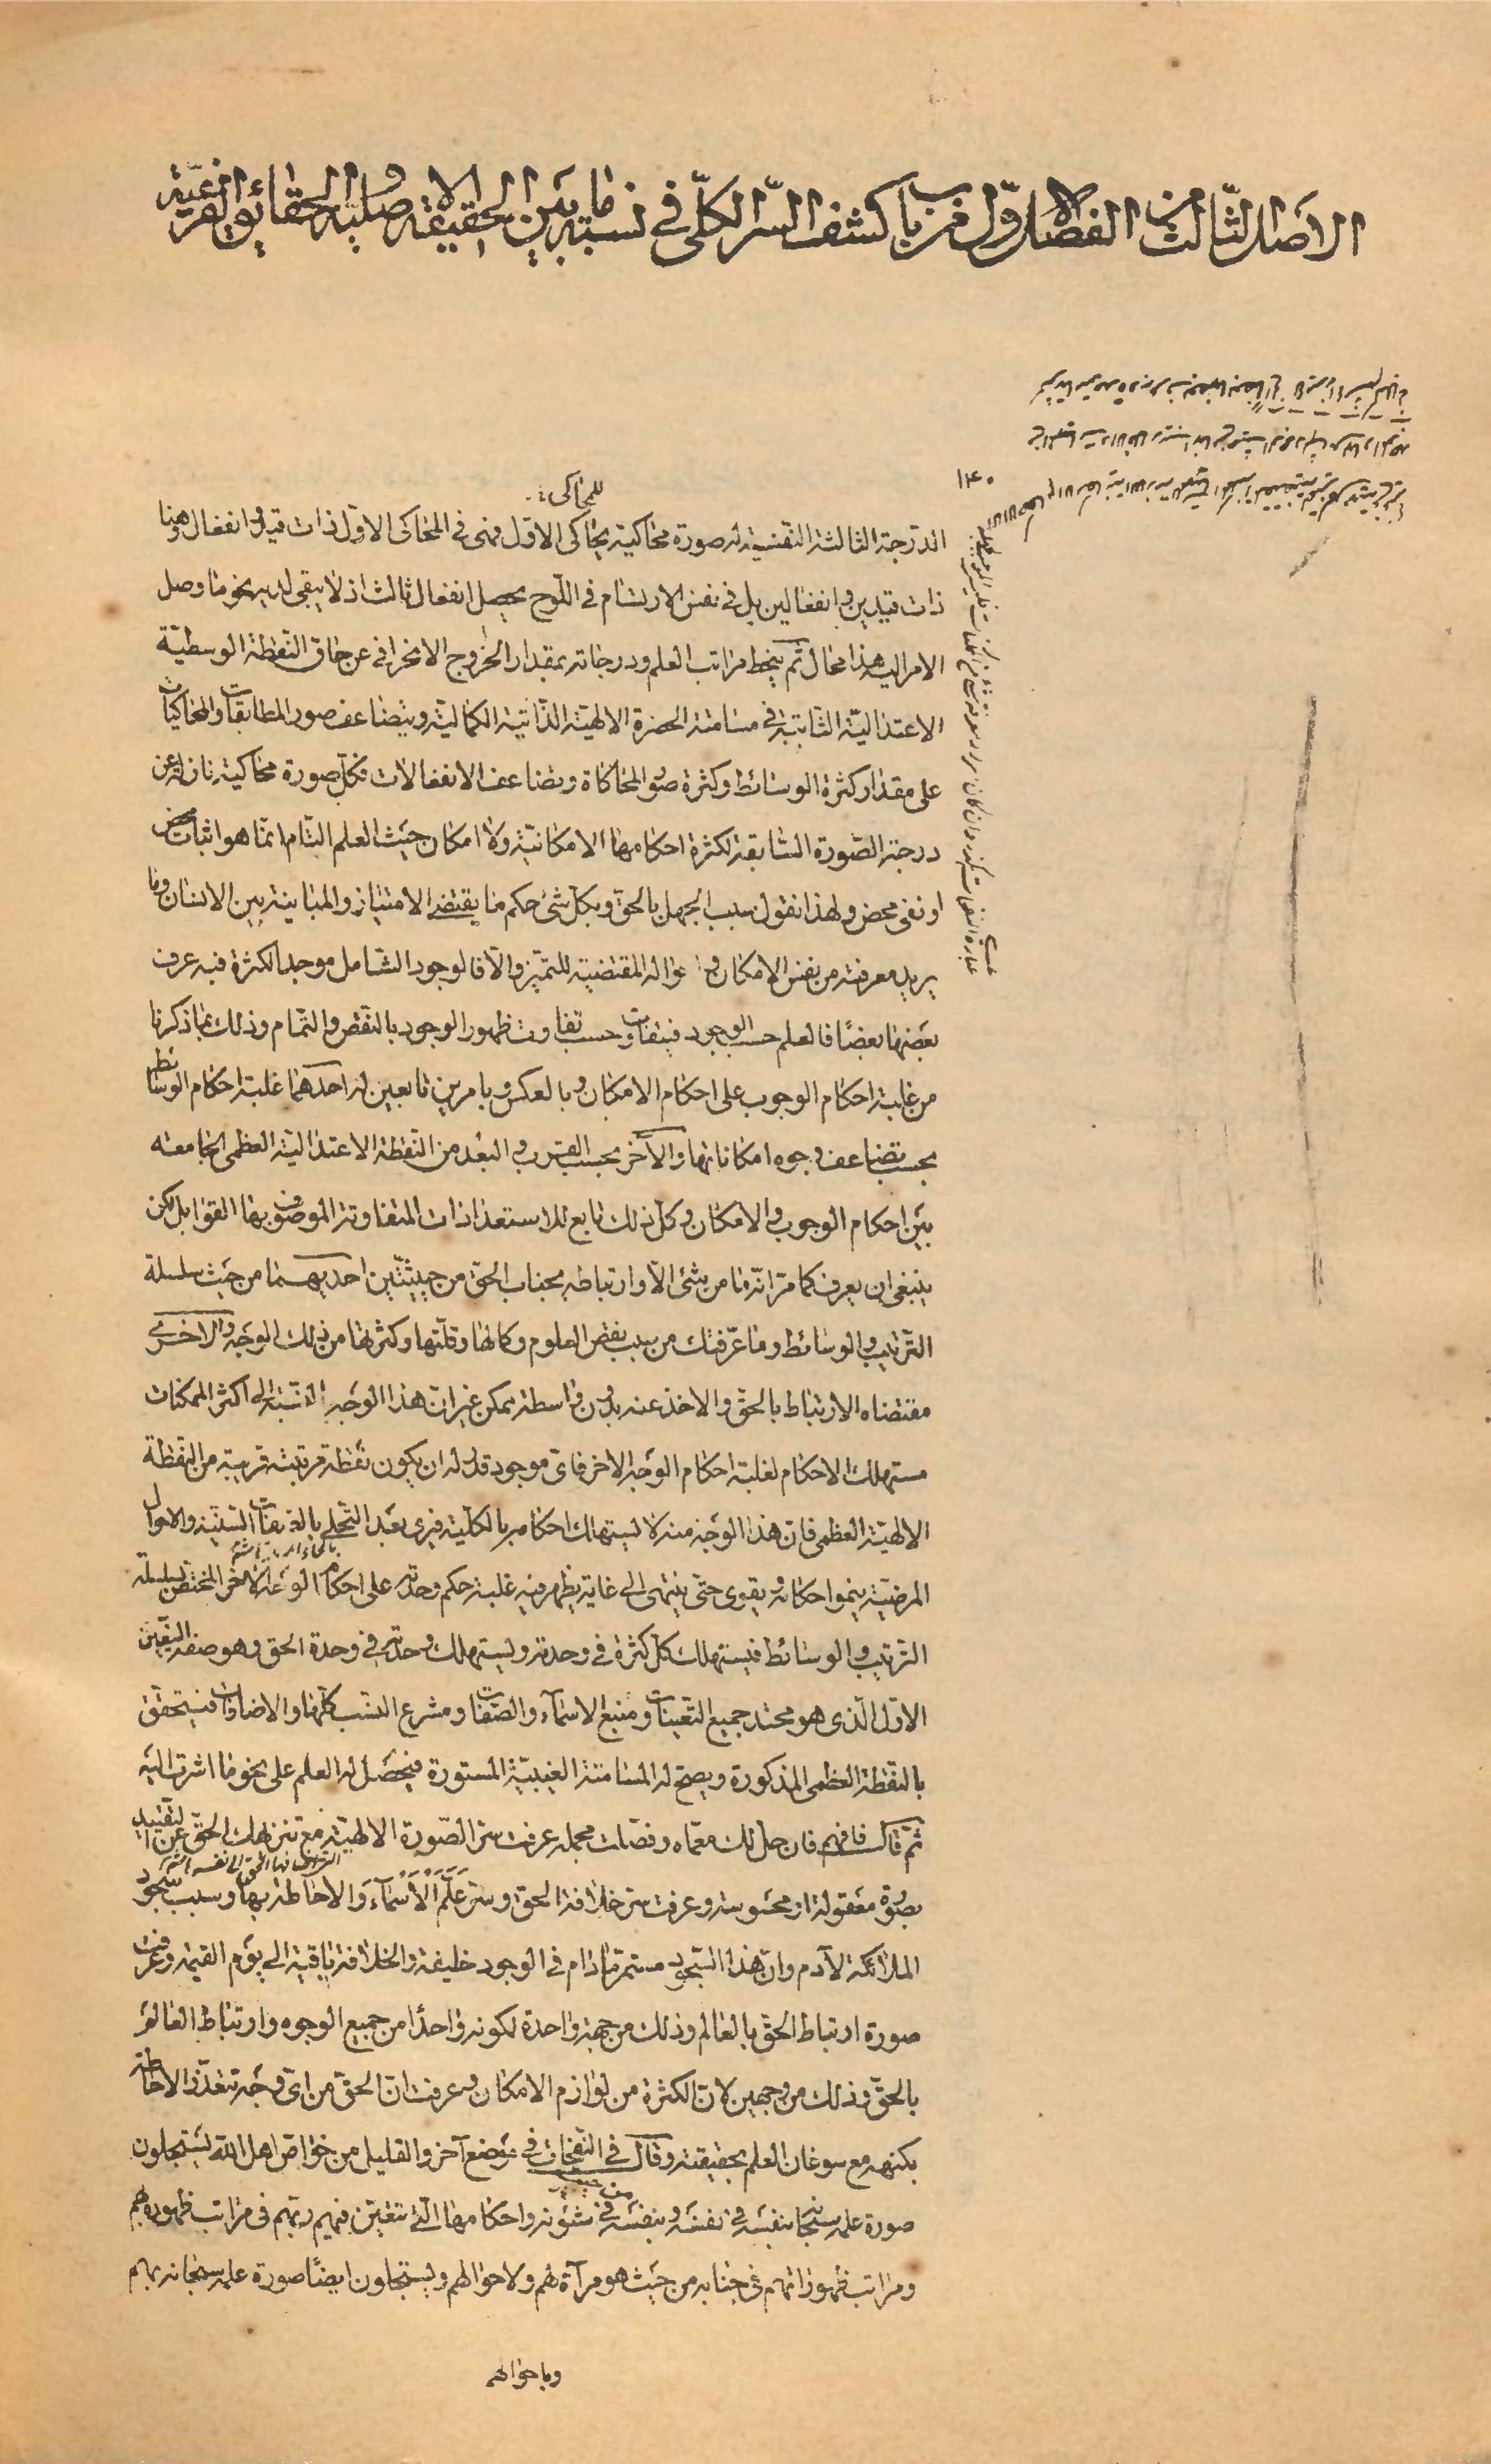 الاصل الثالث من الفصل الاول من باب كشف السّر الكلّى فى نسبة ما بين الحقيقة الاصلية و الحقائق الفرعيّة
للمحاكى
الدّرجة الثالثة النفسية له صورة محاكية يحاكى الاول فهى فى المحاكى الاوّل ذات قيد و انفعال وهنا
ذات قيدين و انفعالين بل فى نفس الارتسام فى اللّوح يحصل انفعال ثالث اذ لا يبقى لديه نحو ما وصل
الامر اليه هذا محال ثم ينحط مراتب العلم ودرجاته بمقدار الخروج الانحرافى عن حاق النّقطة الوسطيّة
الاعتداليّة الثابتة فى مسامتة الحضرة الالهيّة الذّاتية الكماليّة ويتضاعف صور المطابقات والمحاكيات
على مقدار كثرة الوسائط وكثرة صور المحاكاة وتضاعف الانفعالات فكلّ صورة محاكية نازلة عن
درجة الصّورة السّابقة لكثرة احكامها الامكانيّة ولا امكان حيث العلم التّام انّما هو اثبات محض
او نفى محض ولهذا نقول سبب الجهل بالحق وبكلّ شئ حكم ما يقتضى الامتياز والمباينة بين الانسان وما
يريد معرفته من نفس الامكان و احواله المقتضية للتميّز والّا فالوجود الشامل موحد الكثرة فيه عرف
بعضها بعضًا فالعلم حسب الوجود فيتفاوت حسب تفاوت ظهور الوجود بالنّقص والتّمام وذلك بما ذكرنا
من غلبة احكام الوجوب على احكام الامكان و بالعكس و بامرين تابعين له احدهما غلبة احكام الوسائط
بحسب تضاعف وجوه امكاناتها والآخر بحسب القرب و البعد من النّقطة الاعتداليّة العظمى الجامعة
بين احكام الوجوب و الامكان وكل ذلك تابع للاستعدادات المتفاوتة الموصوف بها القوابل لكن
ينبغى ان يعرف كما مرّ انّه ما من شئ الّا و ارتباطه بجناب الحقّ من حيثيّتين احديهما من حيث سلسلة
التّرتيب و الوسائط وما عرّفتك من سبب نقص العلوم وكمالها وقلّتها وكثرتها من ذلك الوجه والاخرى
مقتضاه الارتباط بالحقّ والاخذ عنه بدون واسطة ممكن غير انّ هذا الوجه بالنّسبة الى اكثر الممكنات
مستهلك الاحكام لغلبة احكام الوجه الاخر فاىّ موجود قدّر له ان يكون نقطة مرتبته قريبة من النقطة
الالهيّة العظمى فان هذا الوجه منه لا يستهلك احكامه بالكلّية فيرى بعد التّجلى بالصفات السنيّة والاحوال
المرضيّة ينمو احكامه ويقوى حتّى ينتهى الى غاية يظهر فيه غلبة حكم وحدته على احكام الوجه الآخر المختصّ بسلسلة
التّرتيب و الوسائط فيستهلك كلّ كثرة فى وحدته ويستهلك وحدته فى وحدة الحق وهو صفة التّعين
الاوّل الّذى هو محتد جميع التّعينات ومنبع الاسمآء والصّفات ومشرع النّسب كلّها والاضافات فيتحقق
بالنقطة العظمى المذكورة ويصحّ له المسامتة الغيبيّة المستورة فيحصل له العلم على نحو ما اشرت اليه
ثمّ قال فافهم فان حلّ لك معمّاه وفصّلت مجمله عرفت سرّ الصّورة الالهيّة مع تنزيهك الحقّ عن التّقييد
بصورة معقولة او محسوسة وعرفت سر خلافة الحق و سر عَلَّمَ الْأَسْمآءَ والاحاطة بها وسبب سجود
الملائكة لآدم وان هذا السّجود مستمرّ مادام فى الوجود خليفة والخلافة باقية الى يوم القيمة وعرفت
صورة ارتباط الحقّ بالعالم وذلك من جهة واحدة لكونه واحدًا من جميع الوجوه وارتباط العالم
بالحقّ وذلك من وجهين لانّ الكثرة من لوازم الامكان وعرفت انّ الحقّ من اىّ وجه تتعذّر الاحاطة
بكنهه مع سوغان العلم بحقيقته وقال فى النّفحات فى موضع آخر والقليل من خواصّ اهل اللّه يستجلون
صورة علمه سبحانه بنفسه فى نفسه و بنفسه فى شئونه و احكامها الّتى تتعيّن فيهم و بهم فى مراتب ظهوره بهم
ومراتب ظهوراتهم فى جنابه من حيث هو مرآة لهم ولاحوالهم ويستجلون ايضًا صورة علمه سبحانه بهم
وباحوالهم